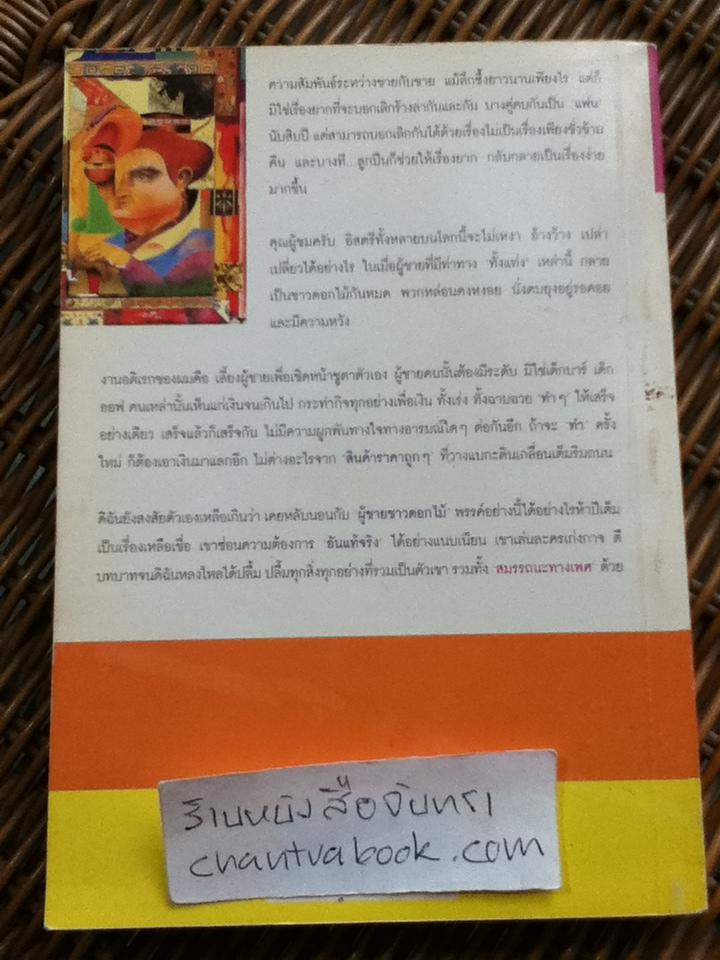 ความสัมพันธ์ระหว่างชายกับชาย แม้ลึกซึ้งยาวนานเพียงไร แต่ก็
มิใช่เรื่องยากที่จะบอกเลิกร้างลากันและกัน บางคู่คบกันเป็น 'แฟน'
นับสิบปี แต่สามารถบอกเลิกกันได้ด้วยเรื่องไม่เป็นเรื่องเพียงชั่วข้าม
คืน และบางที...ลูกปืนก็ช่วยให้เรื่องยาก กลับกลายเป็นเรื่องง่าย
มากขึ้น
คุณผู้ชมครับ อิสตรีทั้งหลายบนโลกนี้จะไม่เหงา อ้างว้าง เปล่า
เปลี่ยวได้อย่างไร ในเมื่อผู้ชายที่มีท่าทาง 'ทั้งแท่ง' เหล่านี้ กลาย
เป็นชาวดอกไม้กันหมด พวกหล่อนคงหงอย นั่งตบยุงอยู่รอคอย
และมีความหวัง
งานอดิเรกของผมคือ เลี้ยงผู้ชายเพื่อเชิดหน้าชูตาตัวเอง ผู้ชายคนนั้นต้องมีระดับ มิใช่เด็กบาร์ เด็ก
ออฟ คนเหล่านั้นเห็นแก่เงินจนเกินไป กระทำกิจทุกอย่างเพื่อเงิน ทั้งเร่ง ทั้งฉาบฉวย 'ทำๆ' ให้เสร็จ
อย่างเดียว เสร็จแล้วก็เสร็จกัน ไม่มีความผูกพันทางใจทางอารมณ์ใดๆ ต่อกันอีก ถ้าจะ 'ทำ' ครั้ง
ใหม่ ก็ต้องเอาเงินมาแลกอีก ไม่ต่างอะไรจาก 'สินค้าราคาถูกๆ' ที่วางแบกะดินเกลื่อนเต็มริมถนน
ดิฉันยังสงสัยตัวเองเหลือเกินว่า เคยหลับนอนกับ 'ผู้ชายชาวดอกไม้' พรรค์อย่างนี้ได้อย่างไรห้าปีเต็ม
เป็นเรื่องเหลือเชื่อ เขาซ่อนความต้องการ 'อันแท้จริง' ได้อย่างแนบเนียน เขาเล่นละครเก่งกาจ ตี
บทบาทจนดิฉันหลงใหลได้ปลื้ม ปลื้มทุกสิ่งทุกอย่างที่รวมเป็นตัวเขา รวมทั้ง 'สมรรถนะทางเพศ' ด้วย
ร้านหนังสือจันทรา
chantrabook.com